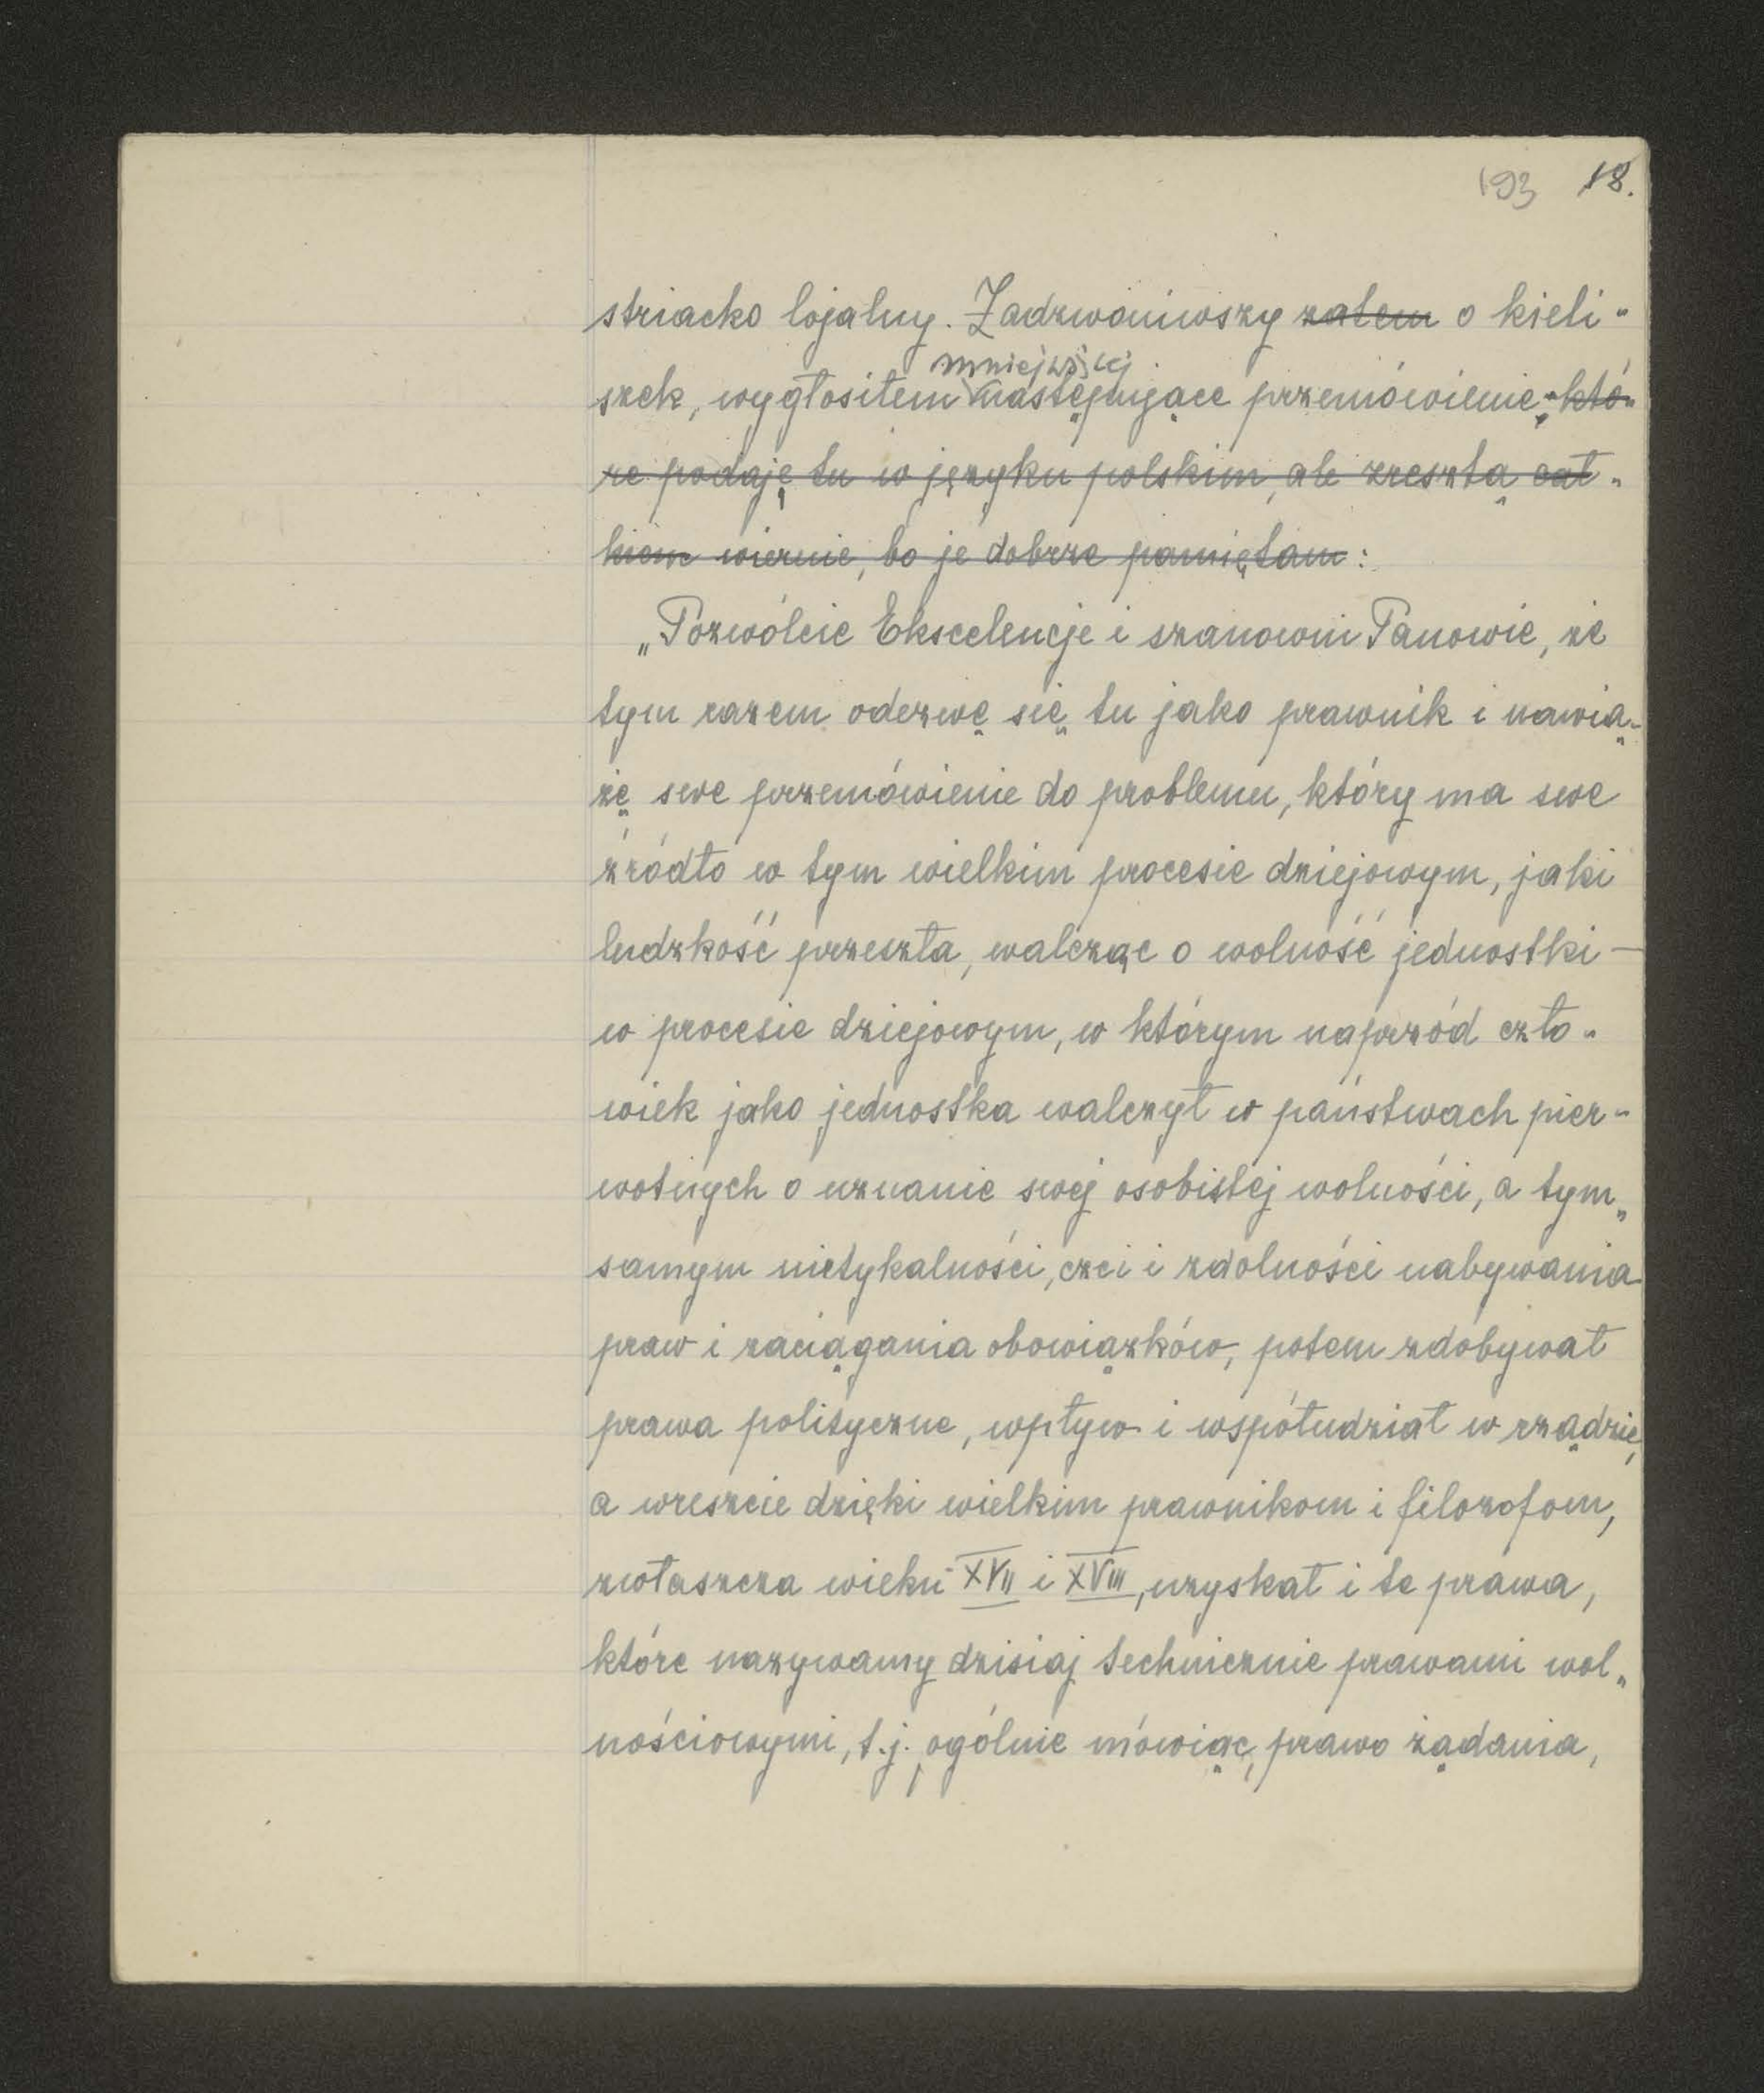 193 18.
striacko lojalny. Zadzwoniwszy zatem o kieli-
mniejwięcej
szek, wygłosiłem następujące przemówienie, któ-
re podaję tu w języku polskim, ale zresztą cał-
kiem wiernie, bo je dobrze pamiętam:
„Pozwólcie Ekscelencje i szanowni Panowie, że
tym razem odezwę się tu jako prawnik i nawią-
żę swe przemówienie do problemu, który ma swe
źródło w tym wielkim procesie dziejowym, jaki
ludzkość przeszła, walcząc o wolność jednostki —
w procesie dziejowym, w którym naprzód czło-
wiek jako jednostka walczył w państwach pier-
wotnych o uznanie swej osobistej wolności, a tym-
samym nietykalności, czci i zdolności nabywania
praw i zaciągania obowiązków, potem zdobywał
prawa polityczne, wpływ i współudział w rządzie,
a wreszcie dzięki wielkim prawnikom i filozofom,
zwłaszcza wieku XVII i XVIII, uzyskał i te prawa,
które nazywamy dzisiaj technicznie prawami wol-
nościowymi, t.j., ogólnie mówiąc, prawo żądania,